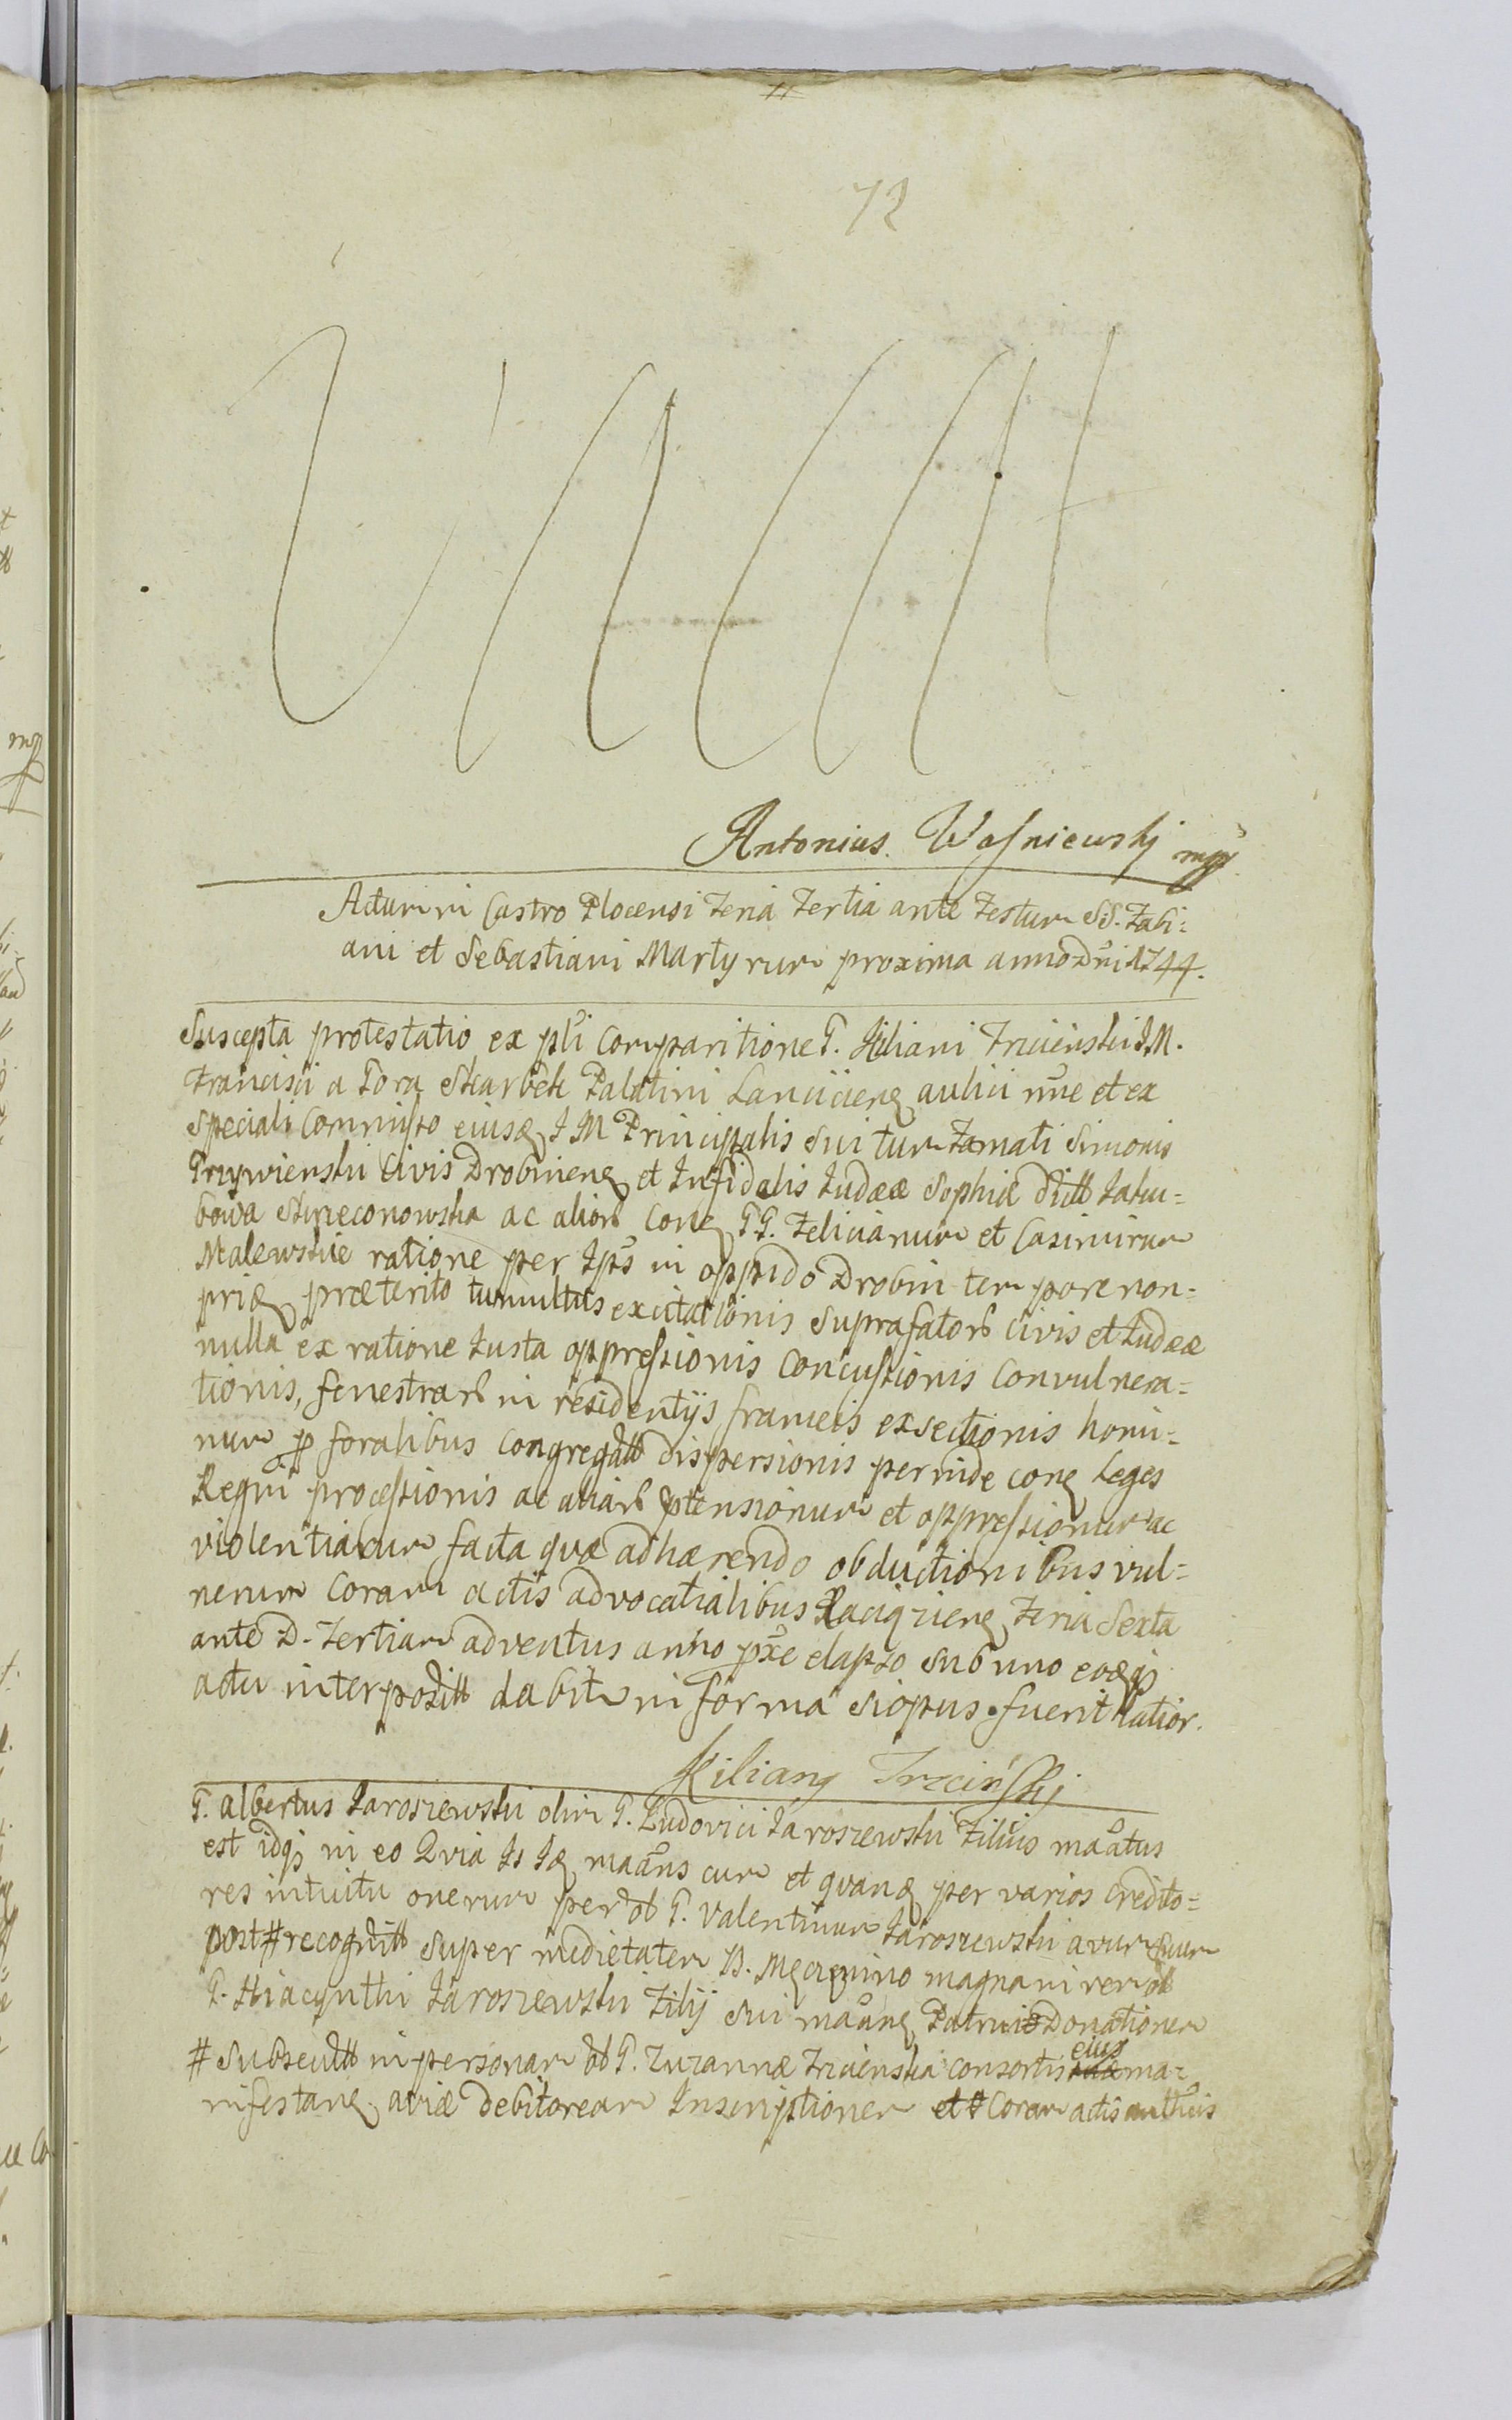 72
Antonius Waśniewskj mpp
Actum in Castro Plocensi Feria Tertia ante Festum SS. Fabi=
ani et Sebastiani Martyrum proxima anno Dni 1744.
Suscepta protestatio ex pti comparitione G. Kiliani Trcienski I.M.
Francisci a Gora Skarbek Palatini Lancicien aulici nne et ex
speciali commisso eiusd I M Principalis sui tum Famati Simonis
Grzywienski Civis Drobnien et Infidelis Iudææ Sophiæ
bowa ac alior con GG. Felicianum et Casimirum
Malewskie ratione per Ips in oppido Drobin tempore non=
priд præterito tumultus excitationis suprafator civis et Iudææ
nulla ex ratione Iusta oppressionis concussionis convulnera=
tionis, fenestrar in residentijs frameis exsectionis homi=
num p foralibus congregatt dispersionis perinde con Leges
Regni processionis ac aliar ptensionum et oppressionum ac
violentiarum facta quæ adhærendo obductionibus vul=
nerum coram actis advocatialibus Raciązien Feria Sexta
ante D. Tertiam adventus anno pxe elapso sub uno eodq
actu interpositt dabitr in forma si opus fuerit latior.
Kilian Trcińskj
G. Albertus Jaroszewski olim G. Ludovici Jaroszewski Filius maatus
est idq in eo Quia Is Id maans cum et quand per varios credito=
res intuitu onerum per ol G. Valentinum Jaroszewski avum suum
post # recognitt super medietatem B. magna in rem ol
G. Hiacynthi Jaroszewski Filij sui maan Patrui Donationem
# subsecutt in personam ol G. Zuzannæ Trcienska consortis eius ma=
nifestan aviæ debitoream Inscriptionem et # coram actis authcis